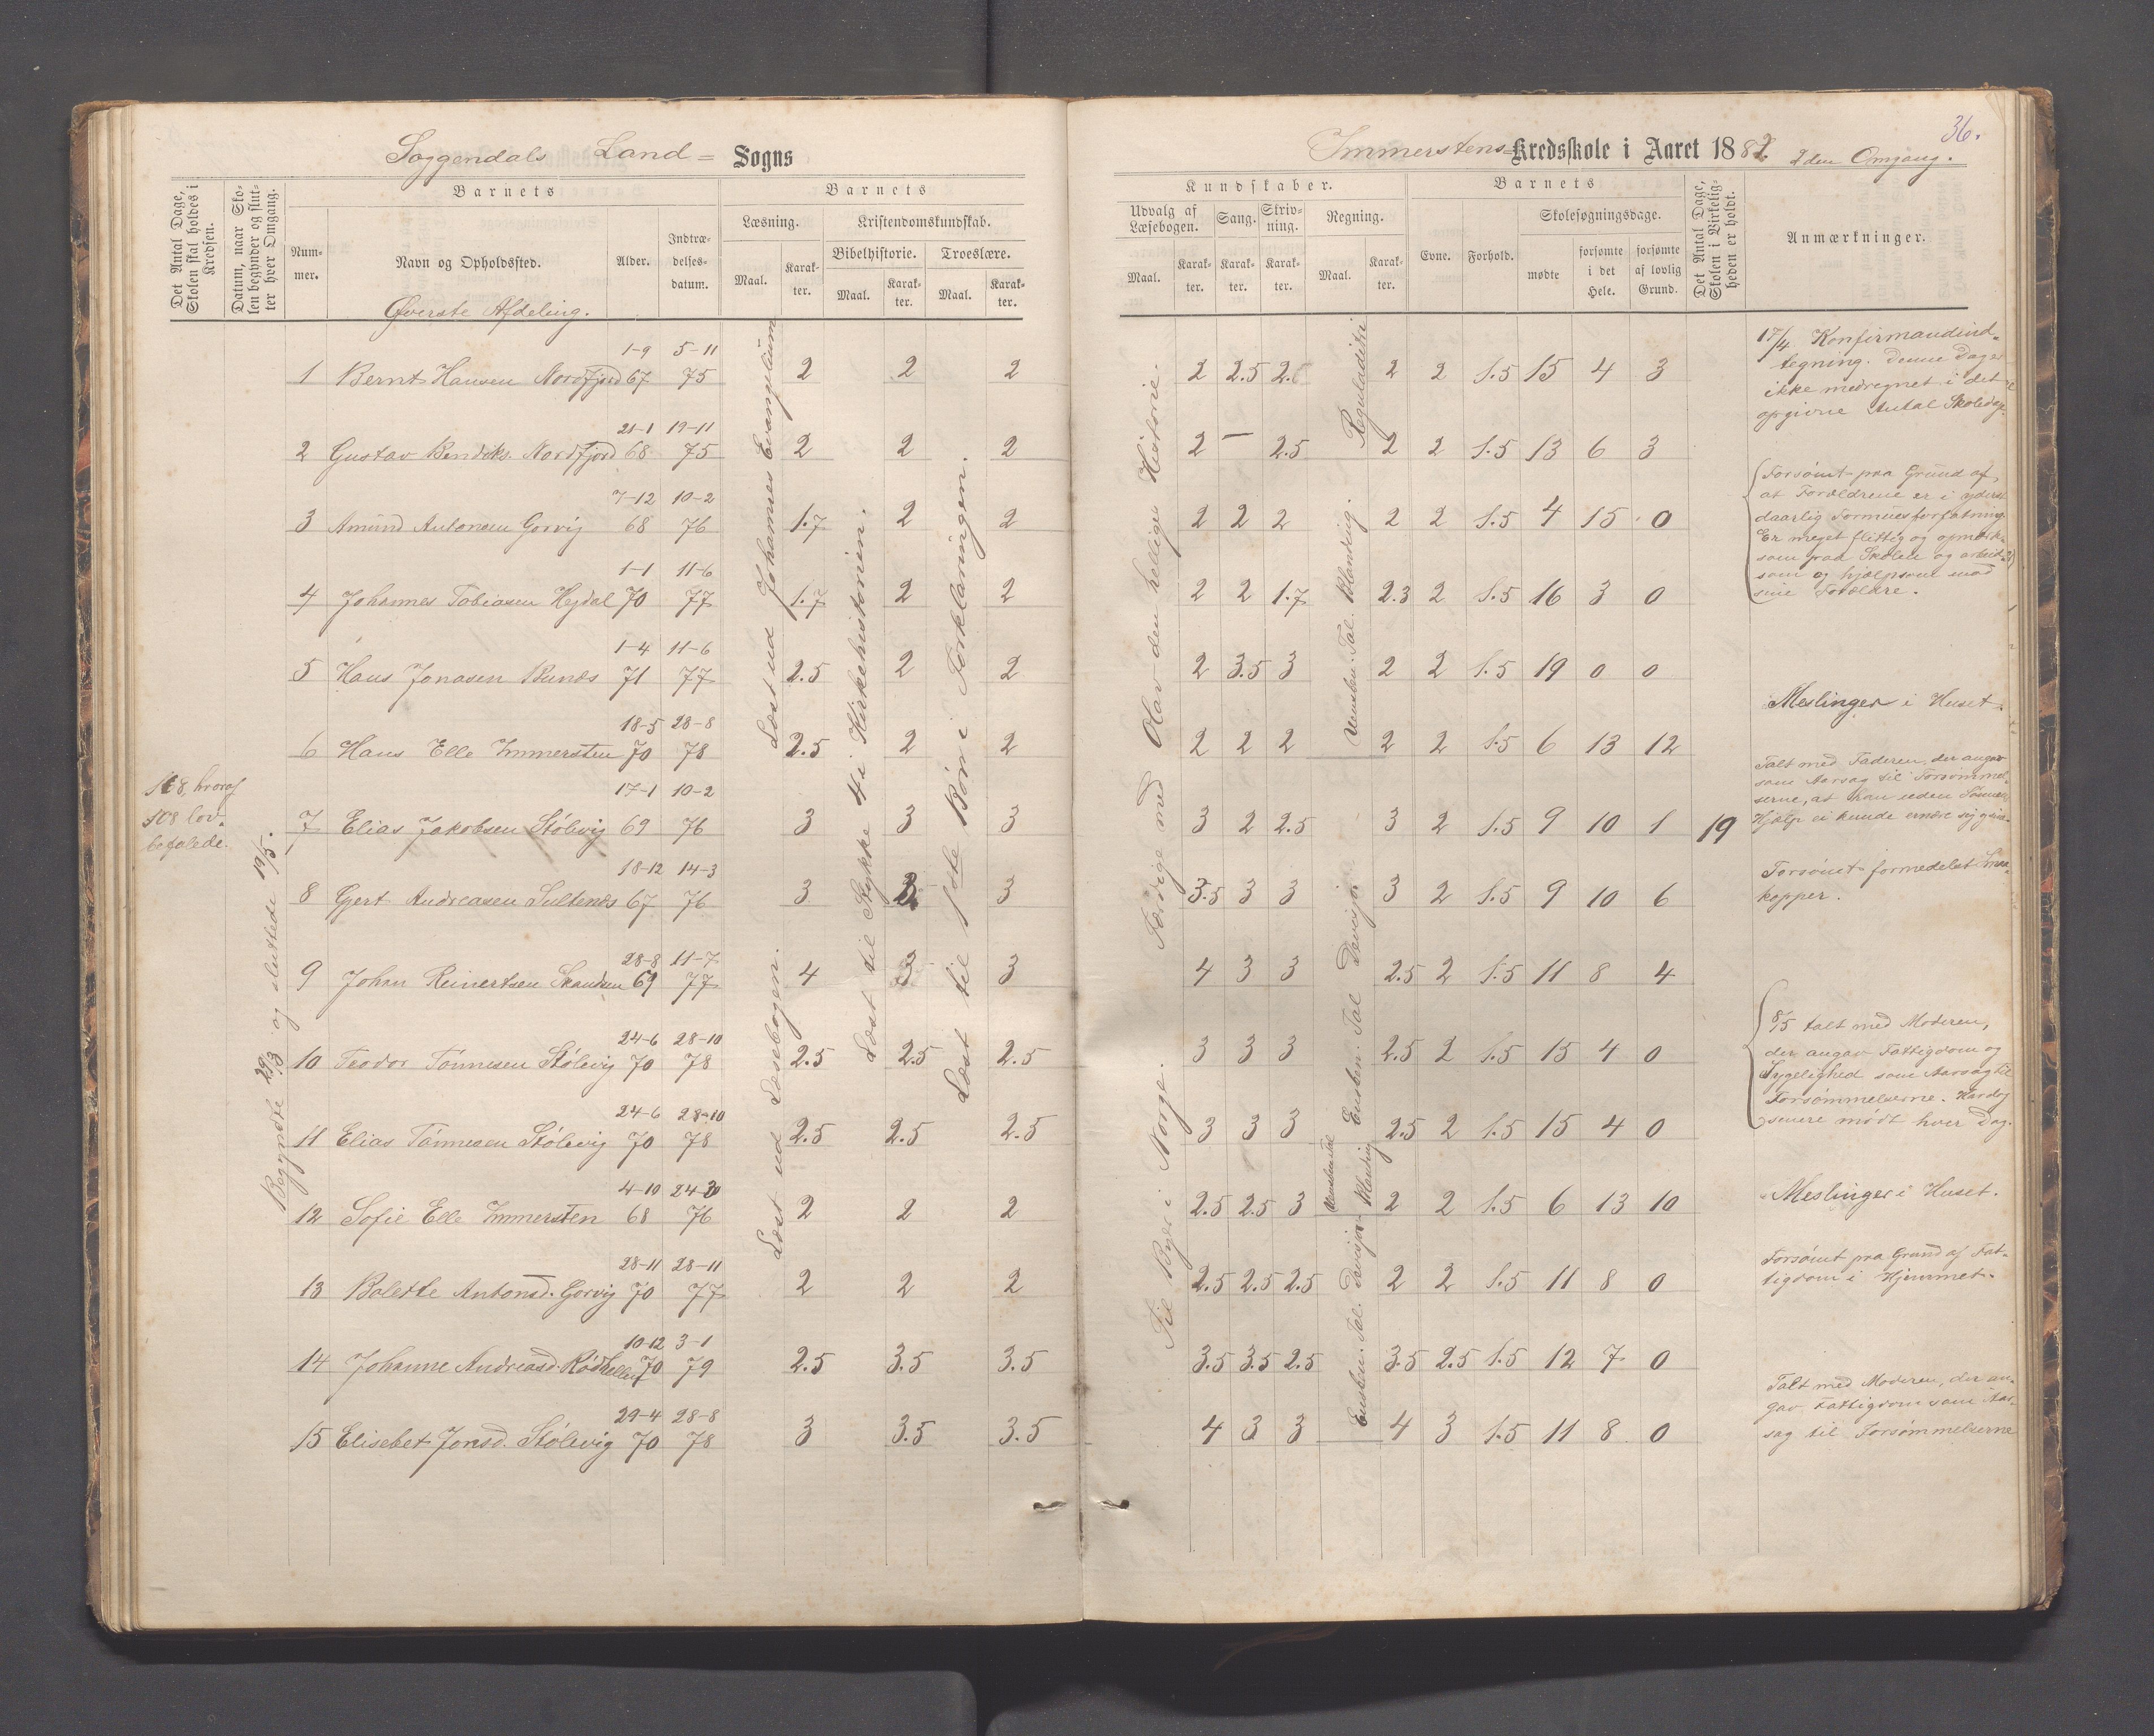 36.
Soggendals Land = Sogns
Immerstens Kredsskole i Aaret 1882. 2den Omgang.
Det Antal Dage, Skolen skal holdes i Kredsen.
Datum, naar Skolen begynder og slutter hver Omgang.
Barnets
Nummer.
Navn og Opholdssted.
Alder.
Indtrædelsesdatum.
Barnets
Læsning.
Maal.
Karakter.
Kristendomskundskab.
Bibelhistorie.
Maal.
Karakter.
Troeslære.
Maal.
Karakter.
Kundskaber.
Udvalg af Læsebogen.
Maal.
Karakter.
Sang.
Karakter.
Skrivning.
Karakter.
Regning.
Maal.
Karakter.
Barnets
Evne.
Forhold.
Skolesøgningsdage.
mødte
forsømte i det Hele.
forsømte af lovlig Grund.
Det Antal Dage, Skolen i Virkeligheden er holdt.
Anmærkninger.
Øverste Afdeling.
hvoraf
108 lov-
befalede.
Begyndte 29/3 og sluttede 19/5.
Læst ud Læsebogen.
Læst ud Johannes Evangelium
Læst til Stykke 4 i Kirkehistorien.
Læst til 1ste Bøn i Forklaringen.
Til Byer i Norge.
Færdige med Olav den hellige Historie.
Reguladetri
Ueensben. Tal. Blanding.
Eensben. Tal Division
Eensben. Tal. Division
1 Bernt Hansen Nordfjord 1-9 67 5-11 75 2 2 2 2 2.5 2.5 2 2 1.5 15 4 3
2 Gustav Bendiks. Nordfjord 21-1 68 19-11 75 2 2 2 2 — 2.5 2 2 1.5 13 6 3
3 Amund Antonsen Gorvig 7-12 68 10-2 76 1.7 2 2 2 2 2 2 2 1.5 4 15 0
4 Johannes Tobiasen Hejdal 1-1 70 11-6 77 1.7 2 2 2 2 1.7 2.3 2 1.5 16 3 0
5 Hans Jonasen Bunes 1-4 71 11-6 77 2.5 2 2 2 3.5 3 2 2 1.5 19 0 0
6 Hans Elle Immersten 18-5 70 28-8 78 2.5 2 2 2 2 2 2 2 1.5 6 13 12
7 Elias Jakobsen Stølevig 17-1 69 10-2 76 3 3 3 3 2 2.5 3 2 1.5 9 10 1 19
8 Gjert Andreasen Sultenes 18-12 67 14-3 76 3 3 3 3.5 3 3 3 2 1.5 9 10 6
9 Johan Reinertsen 28-8 69 11-7 77 4 3 3 4 3 3 2.5 2 1.5 11 8 4
10 Teodor Tønnesen Stølevig 24-6 70 28-10 78 2.5 2.5 2.5 3 3 3 2.5 2 1.5 15 4 0
11 Elias Tønnesen Stølevig 24-6 70 28-10 78 2.5 2.5 2.5 3 3 3 2.5 2 1.5 15 4 0
12 Sofie Elle Immersten 4-10 68 76 2 2 2 2.5 2.5 3 2 2 1.5 6 13 10
13 Bolette Antonsd. Gorvig 28-11 70 28-11 77 2 2 2 2.5 2.5 2.5 2 2 1.5 11 8 0
14 Johanne Andreasd. 10-12 70 3-1 79 2.5 3.5 3.5 3.5 3.5 2.5 3.5 2.5 1.5 12 7 0
15 Elisebet Jonsd. Stølevig 29-4 70 28-8 78 3 3.5 3.5 4 3 3 4 3 1.5 11 8 0
17/4 Konfirmandind-
tegning. Denne Dag er
ikke medregnet i det
opgivne Antal Skoledage
Forsømt paa Grund af,
at Forældrene er i yderst
daarlig Formuesforfatning.
Er meget flittig og opmærk-
som paa Skolen og arbeid-
som og hjælpsom mod
sine Forældre.
Meslinger i Huset.
Talt med Faderen, der angav
som Aarsag til Forsømmel-
serne, at han uden Sønnens
Hjælp ei kunde
Forsømt formedelst Smaa-
kopper.
8/5 talt med Moderen,
der angav Fattigdom og
Sygelighed som Aarsag til
Forsømmelserne. Har dog
senere mødt hver Dag.
Meslinger i Huset.
Forsømt paa Grund af Fat-
tigdom i Hjemmet.
Talt med Moderen, der an-
gav Fattigdom som Aar-
sag til Forsømmelserne